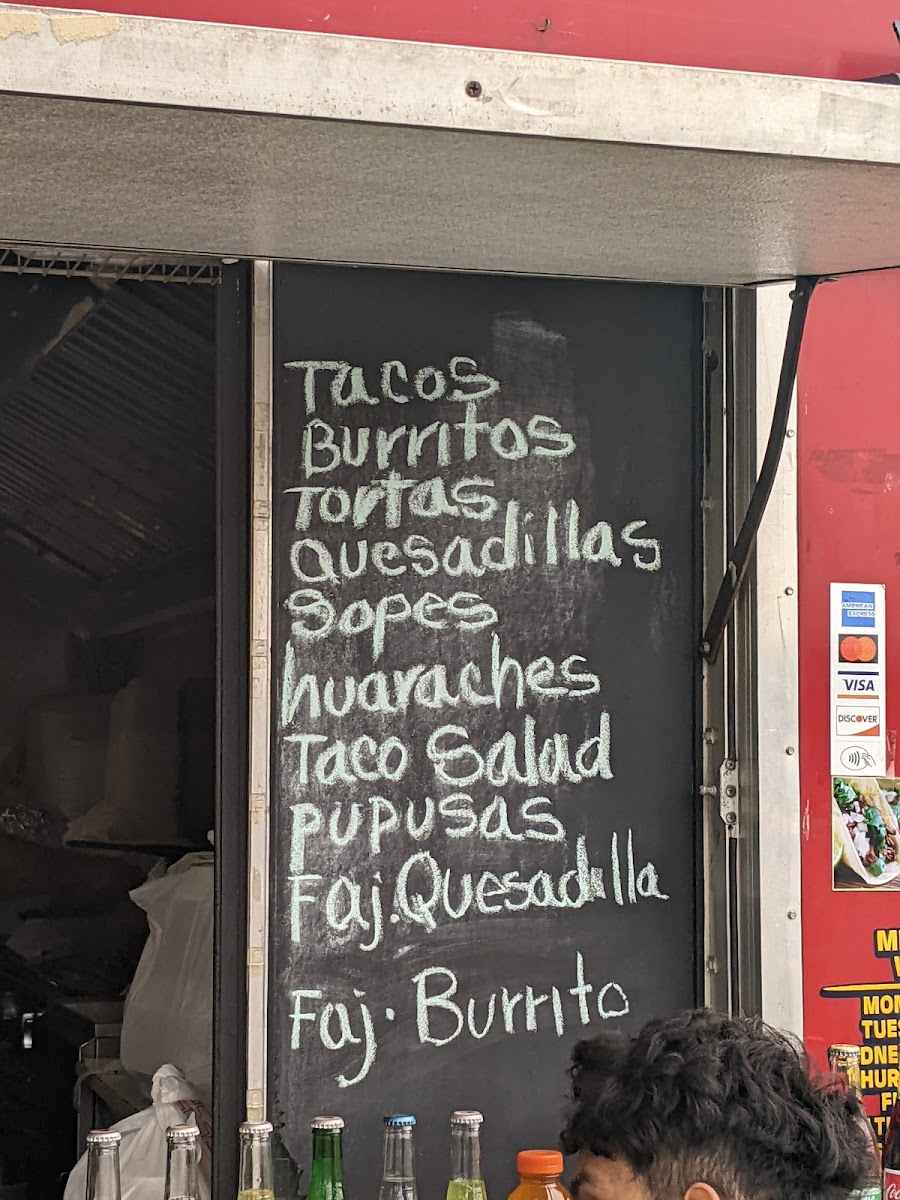 Tacos
Burritos
Tortas
Quesadillas
Sopes
huaraches
Taco Salad
pupusas
Faj. Quesadilla
Faj. Burrito
AMERICAN
EXPRESS
VISA
DISCOVER
MON
TUES